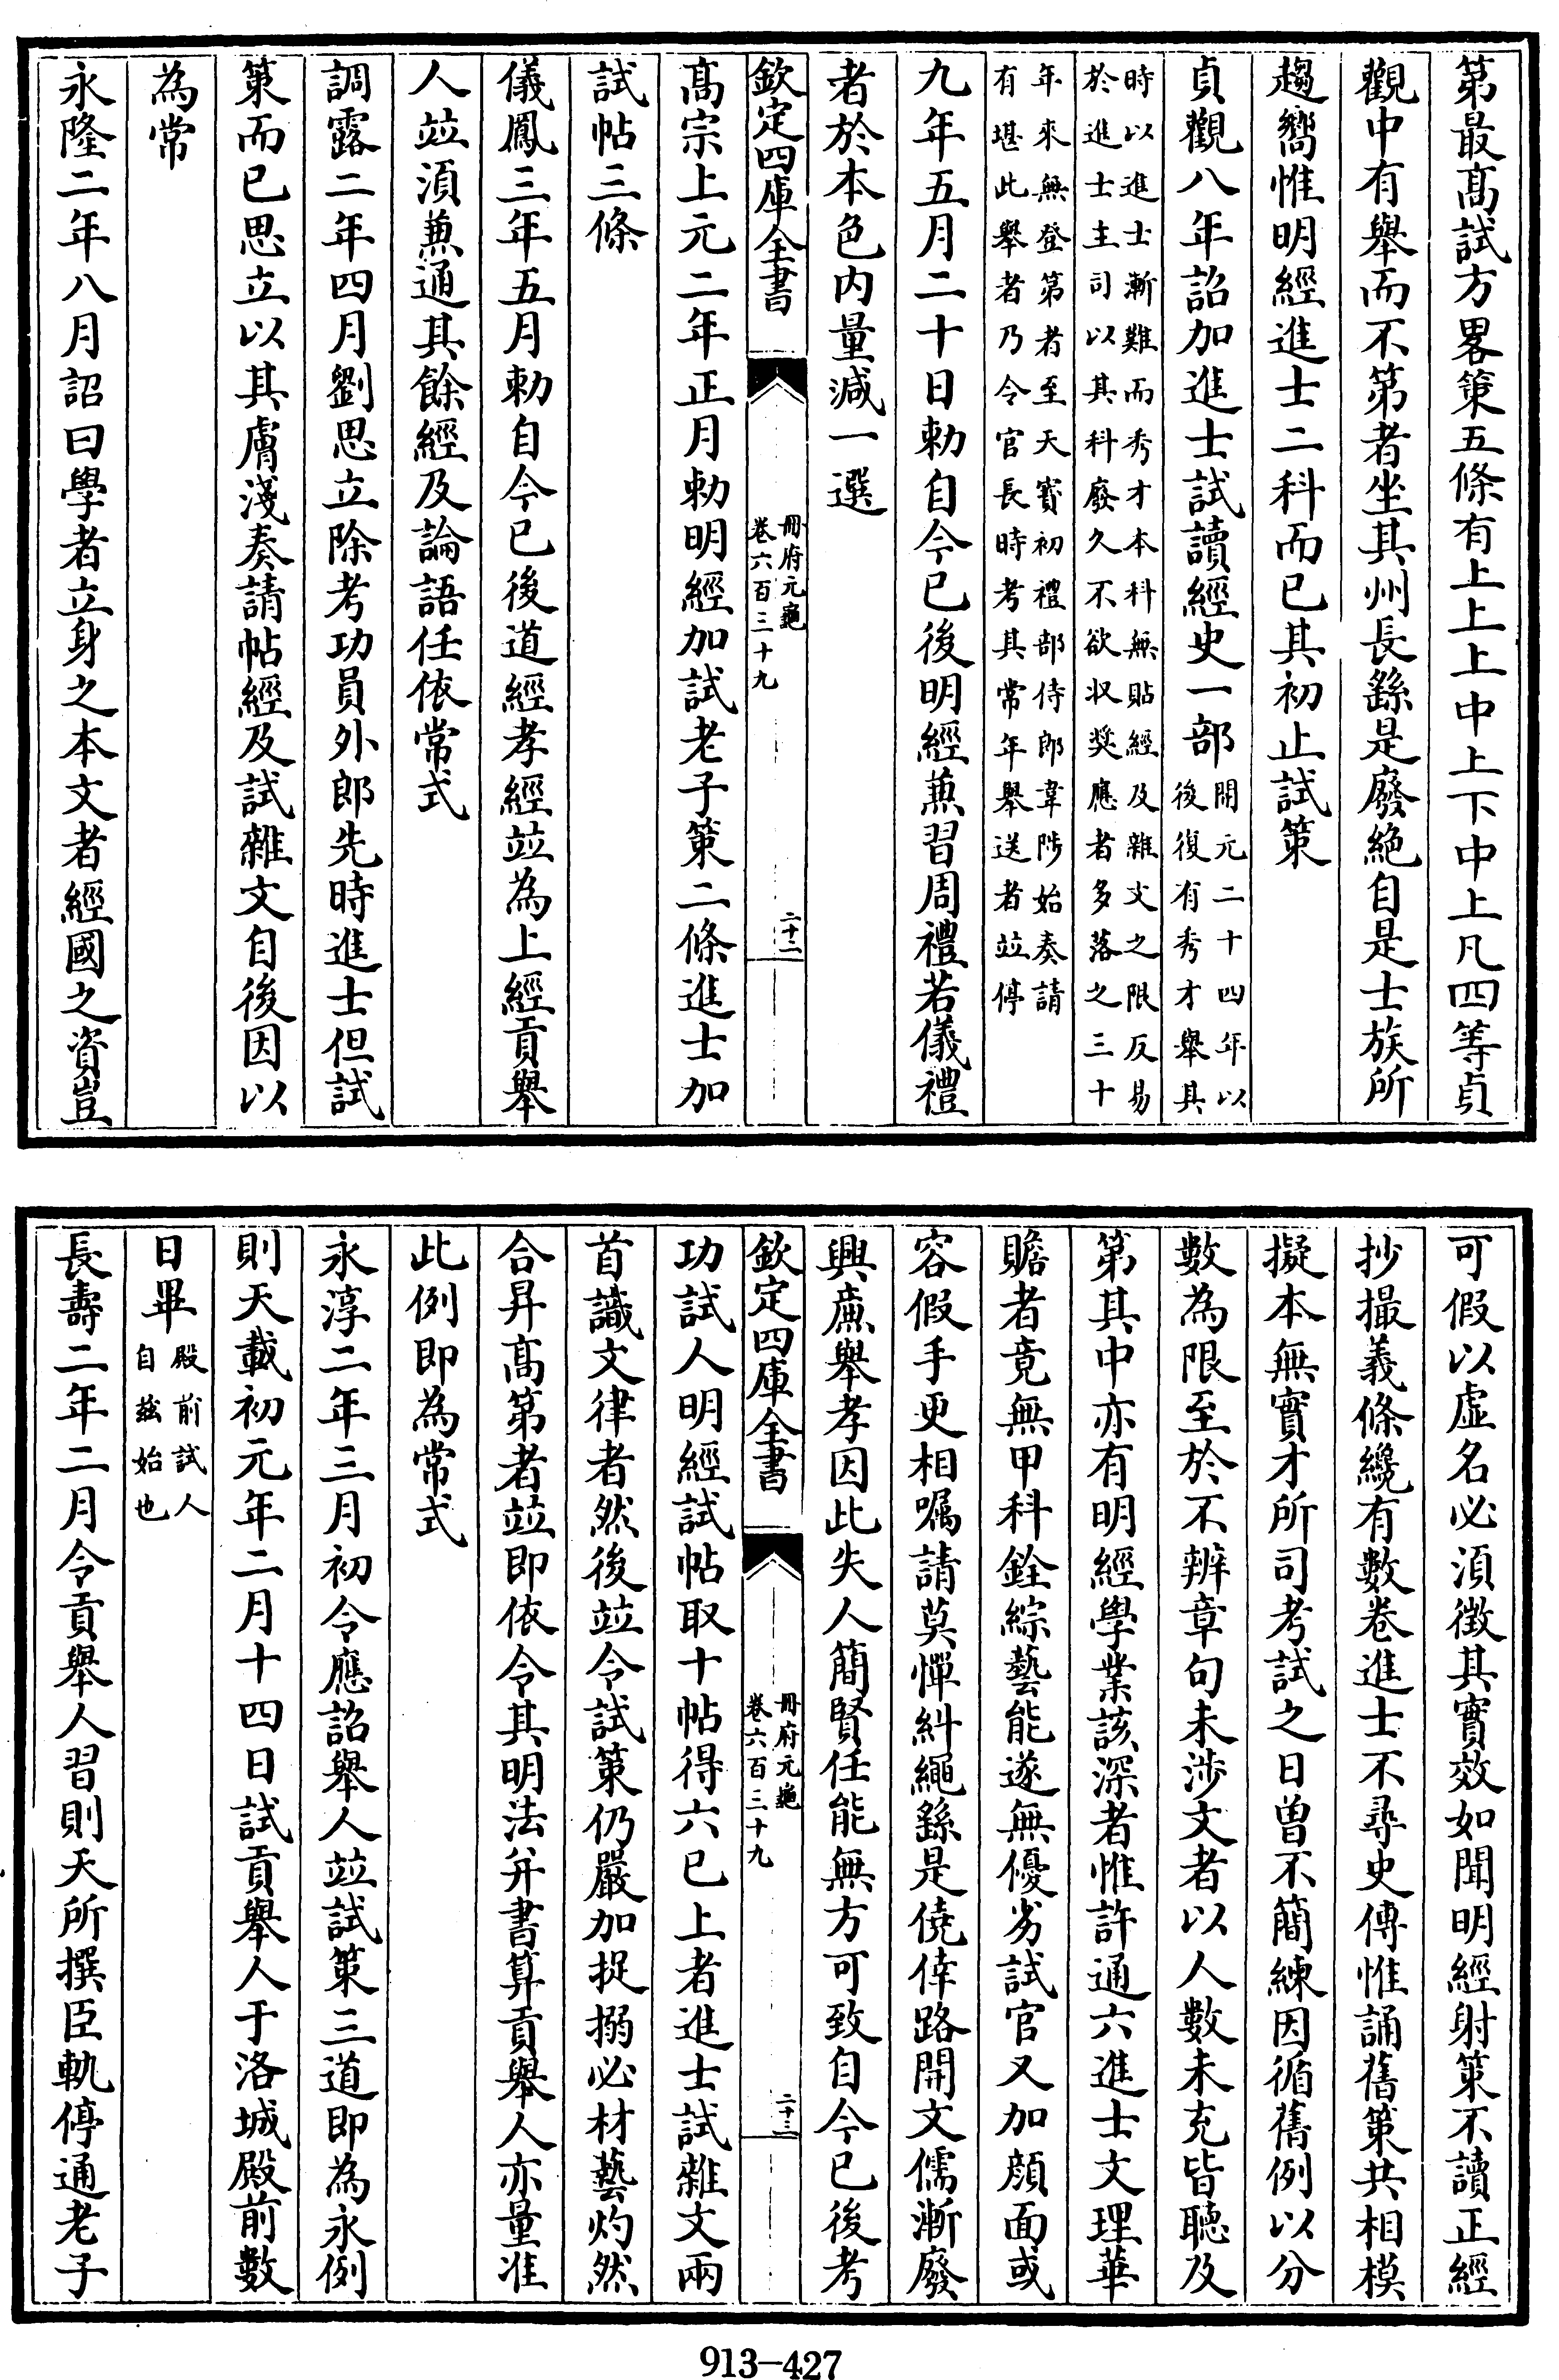 第最髙試方畧策五條有上上上中上下中上凡四等貞
觀中有舉而不第者坐其州長繇是廢絶自是士族所
趨嚮惟明經進士二科而已其初止試策
貞觀八年詔加進士試讀經史一部開元二十四年以後復有秀才舉其
時以進士漸難而秀才本科無貼經及雜文之限反易
於進士主司以其科廢久不欲収奨應者多落之三十
年來無登第者至天寳初禮部侍郎韋陟始奏請
有堪此舉者乃令官長時考其常年舉送者竝停
九年五月二十日勅自今已後明經兼習周禮若儀禮
者於本色内量減一選
欽定四庫全書
冊府元龜
卷六百三十九
二十二
髙宗上元二年正月勅明經加試老子策二條進士加
試帖三條
儀鳳三年五月勅自今已後道經孝經竝為上經貢舉
人竝湏兼通其餘經及論語任依常式
調露二年四月劉思立除考功員外郎先時進士但試
策而已思立以其膚淺奏請帖經及試雜文自後因以
為常
永隆二年八月詔曰學者立身之本文者經國之資豈
可假以虚名必湏徴其實效如聞明經射策不讀正經
抄撮義條纔有數卷進士不尋史傳惟誦舊策共相模
擬本無實才所司考試之日曽不簡練因循舊例以分
數為限至於不辨章句未涉文者以人數未充皆聽及
第其中亦有明經學業該深者惟許通六進士文理華
贍者竟無甲科銓綜藝能遂無優劣試官又加顔面或
容假手更相囑請莫憚糾繩繇是僥倖路開文儒漸廢
興㢘舉孝因此失人簡賢任能無方可致自今已後考
欽定四庫全書
冊府元龜
卷六百三十九
二十三
功試人明經試帖取十帖得六已上者進士試雜文兩
首識文律者然後竝令試策仍嚴加捉搦必材藝灼然
合昇髙第者竝即依令其明法并書算貢舉人亦量准
此例即為常式
永淳二年三月初令應詔舉人竝試策三道即為永例
則天載初元年二月十四日試貢舉人于洛城殿前數
日畢殿前試人自兹始也
長壽二年二月令貢舉人習則天所撰臣軌停通老子
913-427